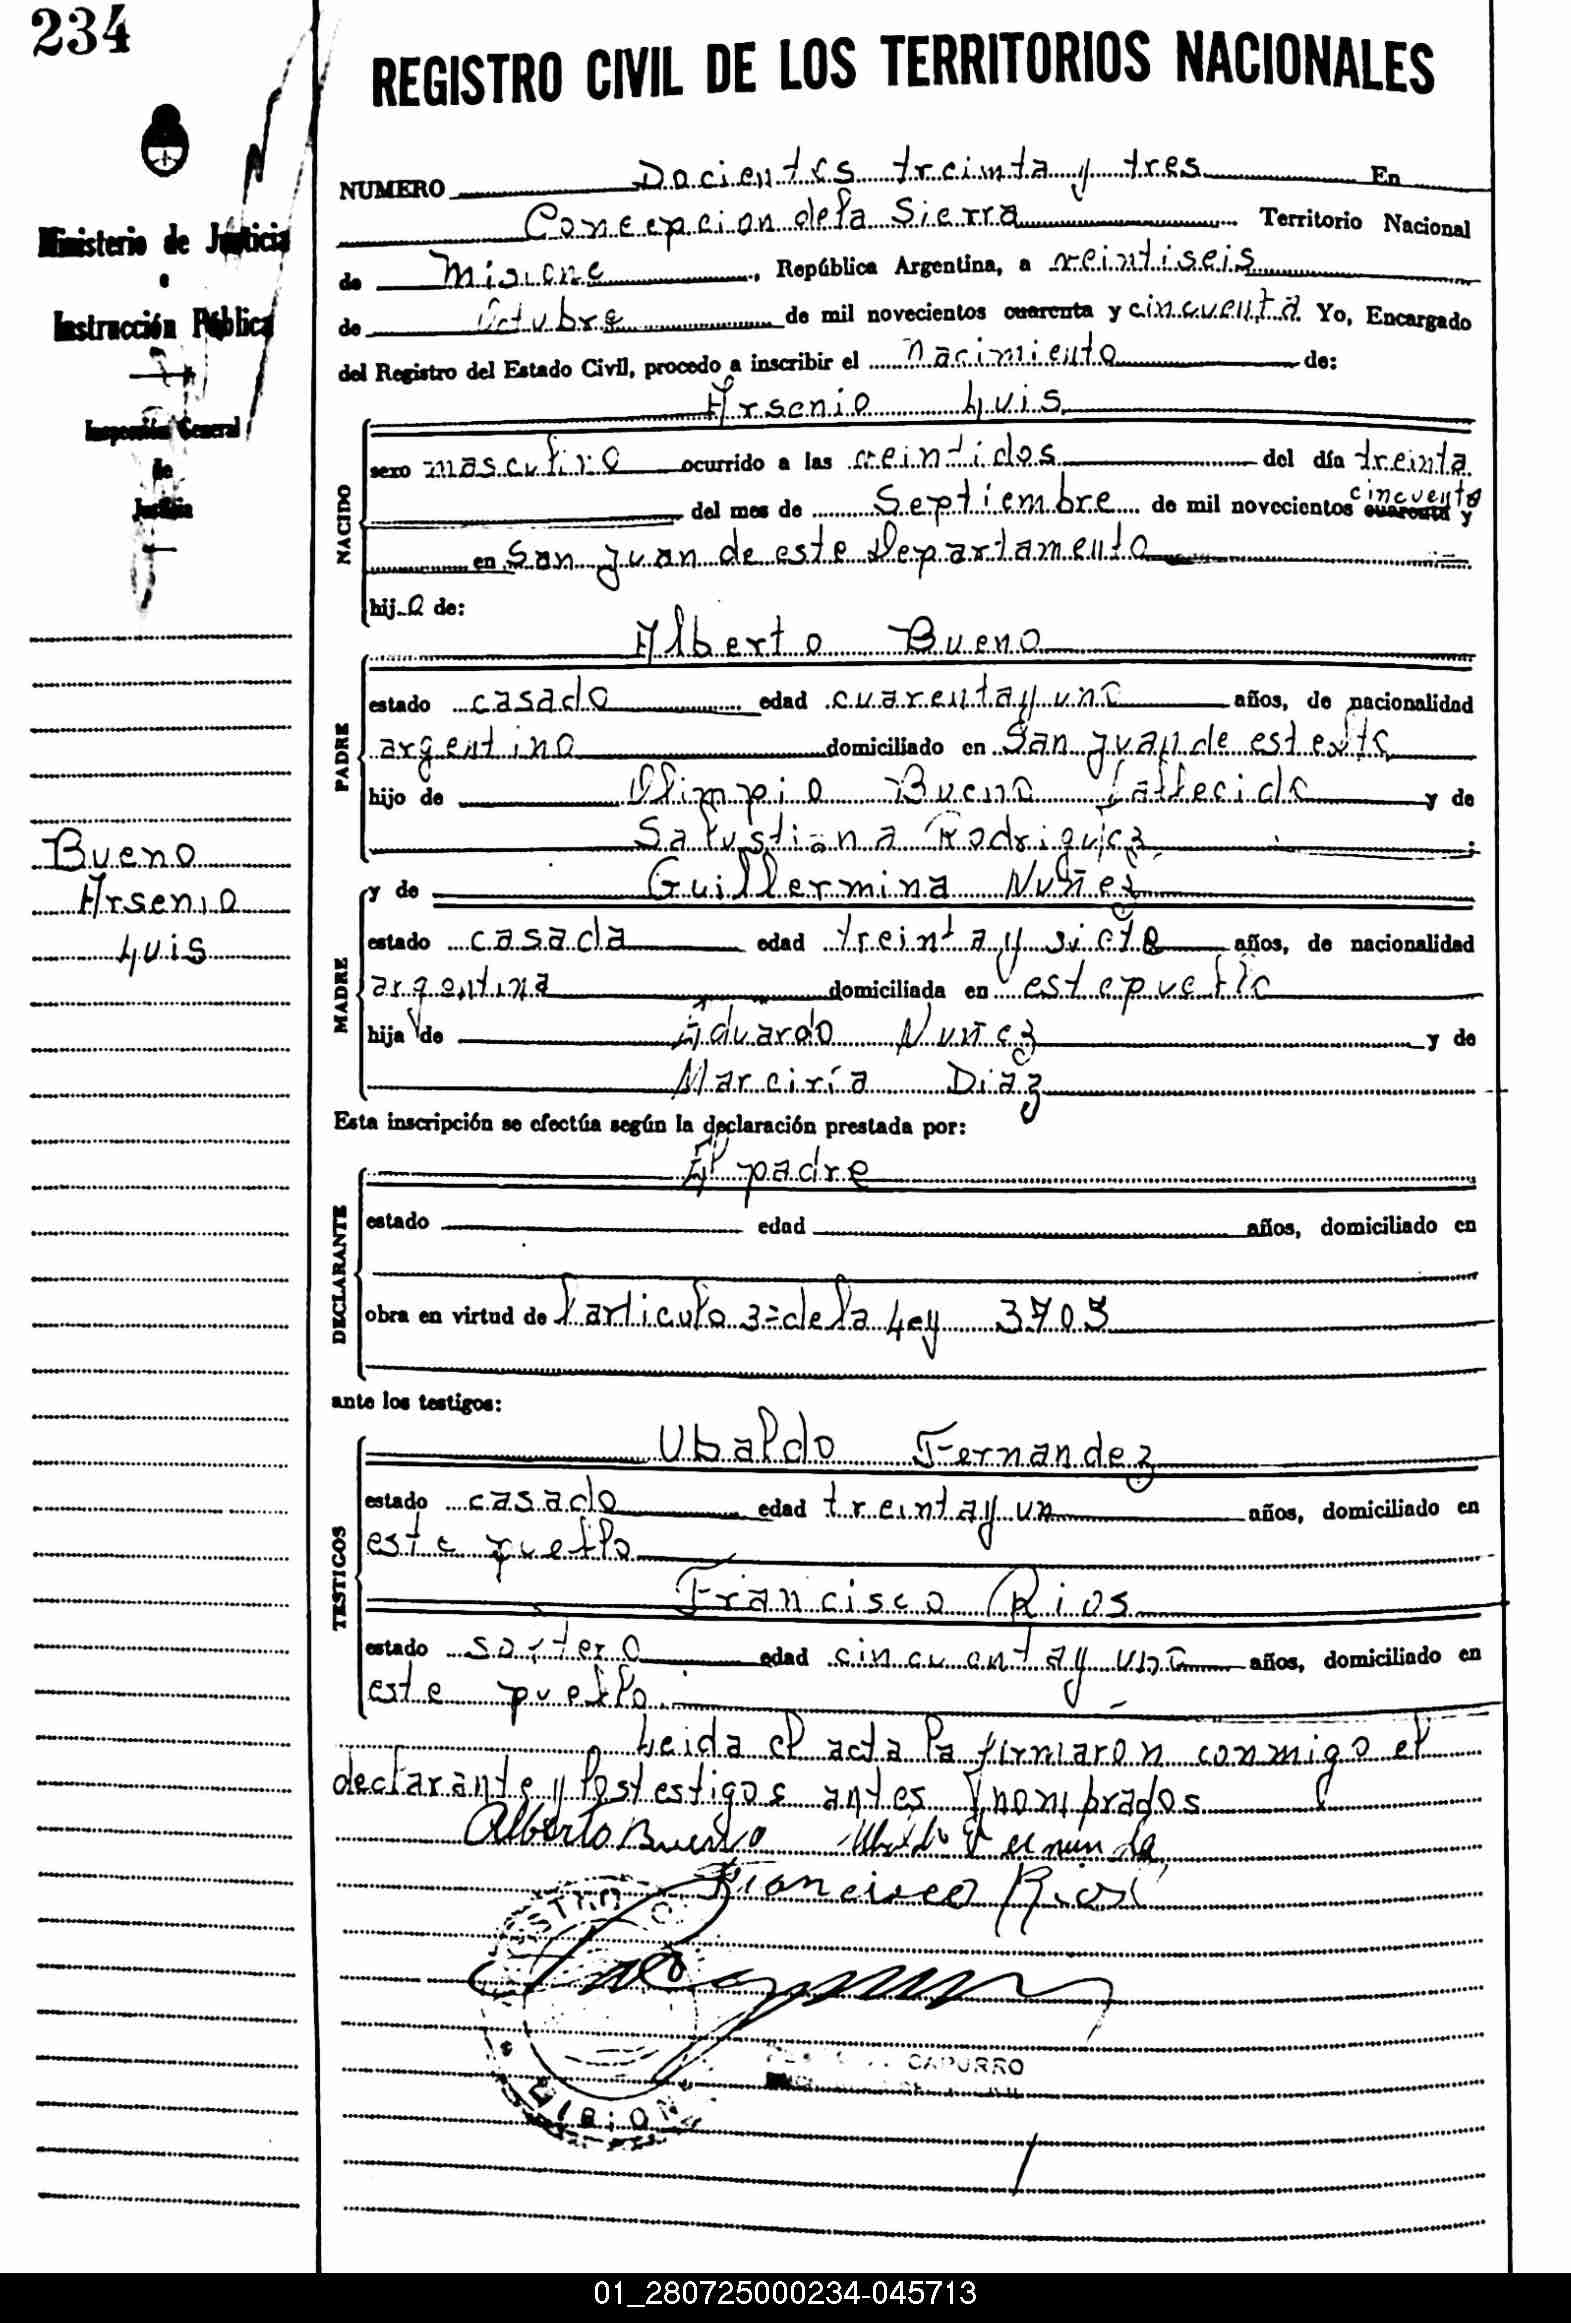 234
REGISTRO CIVIL DE LOS TERRITORIOS NACIONALES
Ministerio de Justicia
e
Instrucción Pública
Inspección General
de
Justicia
Bueno
Arsenio
Luis
NUMERO Docientos treinta y tres En
Concepcion de la Sierra Territorio Nacional
de Misione, República Argentina, a veintiseis
de Octubre de mil novecientos cuarenta y cincuenta Yo, Encargado
del Registro del Estado Civil, procedo a inscribir el Nacimiento de:
NACIDO
Arsenio Luis
sexo masculino ocurrido a las veintidos del día treinta
del mes de Septiembre de mil novecientos cuarenta y cincuenta
en San Juan de este Departamento
hijo de:
PADRE
Alberto Bueno
estado casado edad cuarenta y uno años, de nacionalidad
argentino domiciliado en San Juan de este
hijo de Olimpio Bueno fallecido y de
Salustiana Rodriguez;
MADRE
y de Guillermina Nuñez
estado casada edad treinta y siete años, de nacionalidad
argentina domiciliada en este pueblo
hija de Eduardo Nuñez y de
Marciria Diaz
Esta inscripción se efectúa según la declaración prestada por:
DECLARANTE
El padre
estado edad años, domiciliado en
obra en virtud de l articulo 3= de la Ley 3703
ante los testigos:
TESTIGOS
Ubaldo Fernandez
estado casado edad treinta y un años, domiciliado en
este pueblo
Francisco Rios
estado soltero edad cincuenta y uno años, domiciliado en
este pueblo.
Leida el acta la firmaron conmigo el
declarante y los testigos antes nombrados
Alberto Bueno
Francisco Rios
CAPURRO
01_280725000234-045713